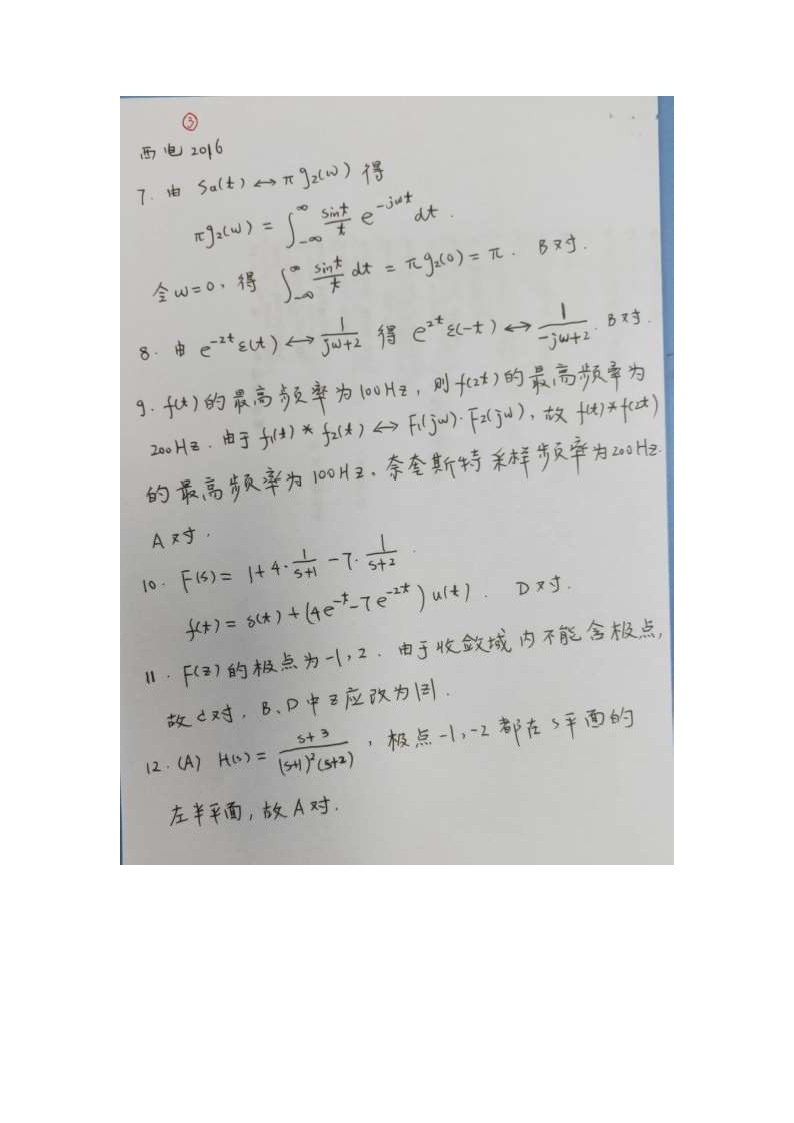 ③
西电2016
7. 由 Sa(t) ↔ πg₂(ω) 得
πg₂(ω) = ∫_{-∞}^{∞} \frac{sint}{t} e^{-jωt} dt.
令ω=0, 得 ∫_{-∞}^{∞} \frac{sint}{t} dt = πg₂(0) = π. B对.
8. 由 e^{-2t}ε(t) ↔ \frac{1}{jω+2} 得 e^{2t}ε(-t) ↔ \frac{1}{-jω+2}. B对.
9. f(t)的最高频率为100Hz, 则f(2t)的最高频率为
200Hz. 由于 f₁(t) * f₂(t) ↔ F₁(jω)·F₂(jω), 故 f(t)*f(2t)
的最高频率为100Hz, 奈奎斯特采样频率为200Hz.
A对.
10. F(s) = 1+4·\frac{1}{s+1} -7·\frac{1}{s+2}.
f(t) = δ(t) + (4e^{-t}-7e^{-2t})u(t). D对.
11. F(z)的极点为-1, 2. 由于收敛域内不能含极点,
故C对, B、D中z应改为|z|.
12. (A) H(s) = \frac{s+3}{(s+1)²(s+2)}, 极点-1, -2都在s平面的
左半平面, 故A对.